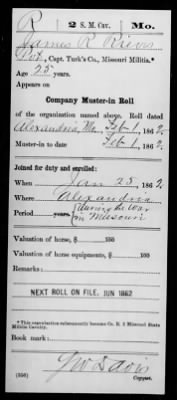 R 2 S. M. Cav. Mo.
James R Rieves
Pvt, Capt. Turk's Co., Missouri Militia.*
Age 25 years.
Appears on
Company Muster-in Roll
of the organization named above. Roll dated
Alexandria, Mo, Feb 1, 1862.
Muster-in to date Feb 1, 1862.
Joined for duty and enrolled:
When Jan 25, 1862.
Where Alexandria
Period during the War
in Missouri
Valuation of horse, $ 100
Valuation of horse equipments, $ 100
Remarks:
NEXT ROLL ON FILE, JUN 1862
* This organization subsequently became Co. 2 Missouri State
Militia Cavalry.
Book mark:
J W Davis
(356) Copyist.